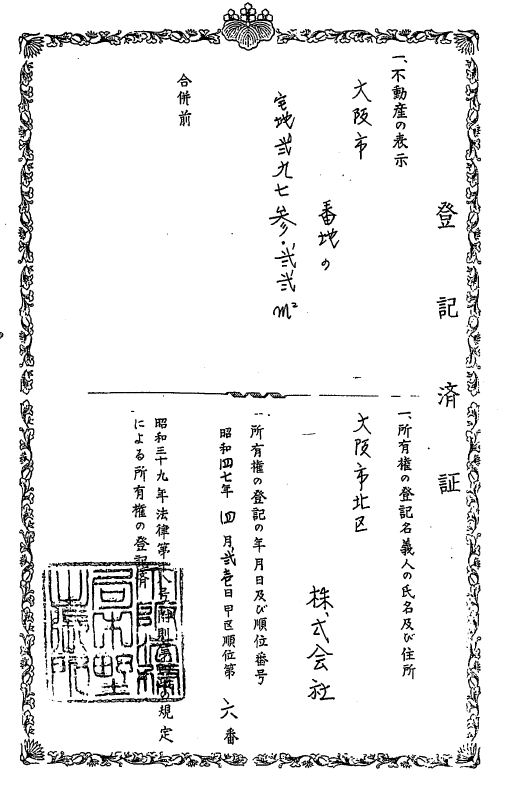 登記済証
一、不動産の表示
大阪市
番地の
宅地弐九七参・弐弐m²
合併前
一、所有権の登記名義人の氏名及び住所
大阪市北区
株式会社
一、所有権の登記の年月日及び順位番号
昭和四七年四月弐壱日甲区順位第六番
昭和三十九年法律第十八号附則の規定
による所有権の登記済